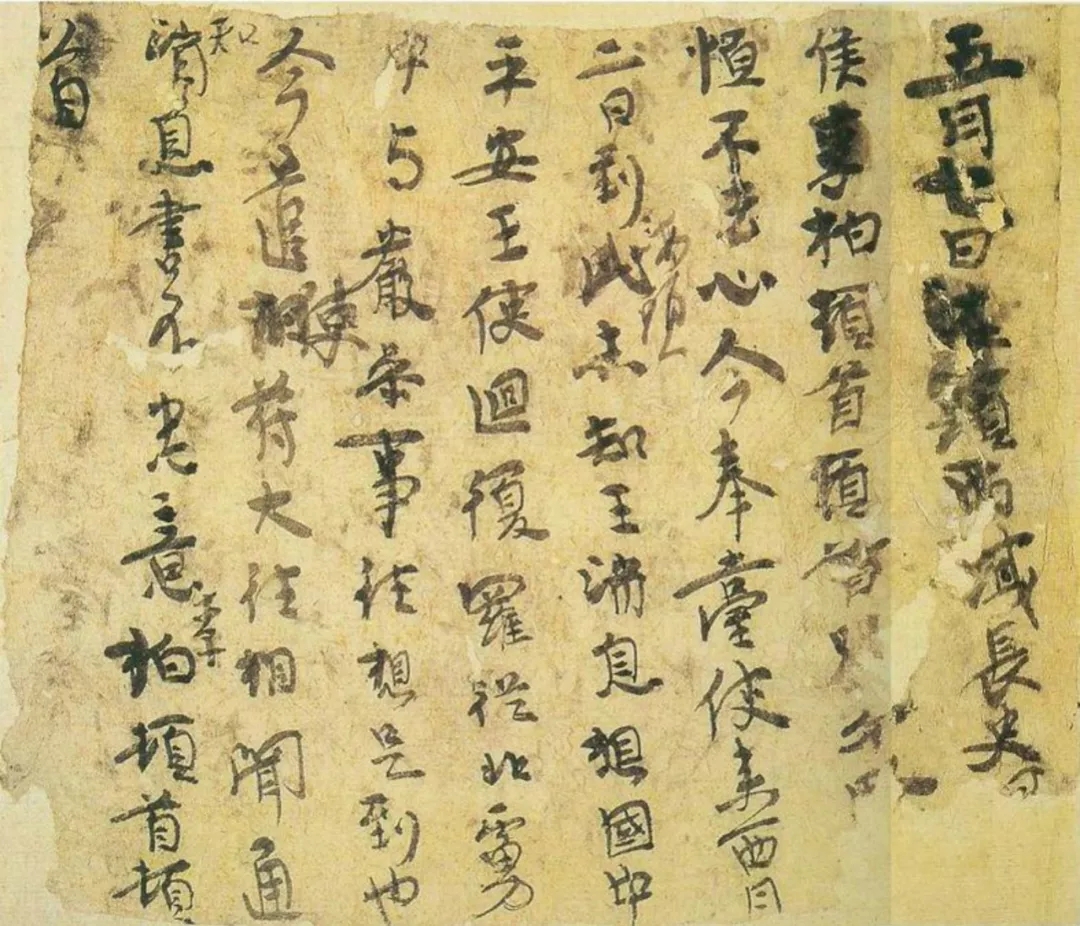 五月七日海頭西域長史
侯李柏頓首頓首
恒不去心今奉臺使來西月
二日到此海頭未知王消息想國中
平安王使迴復羅從北虜
中与嚴參事往想是到也
今遣使苻大往相聞通
知消息書不悉意李柏頓首頓
首